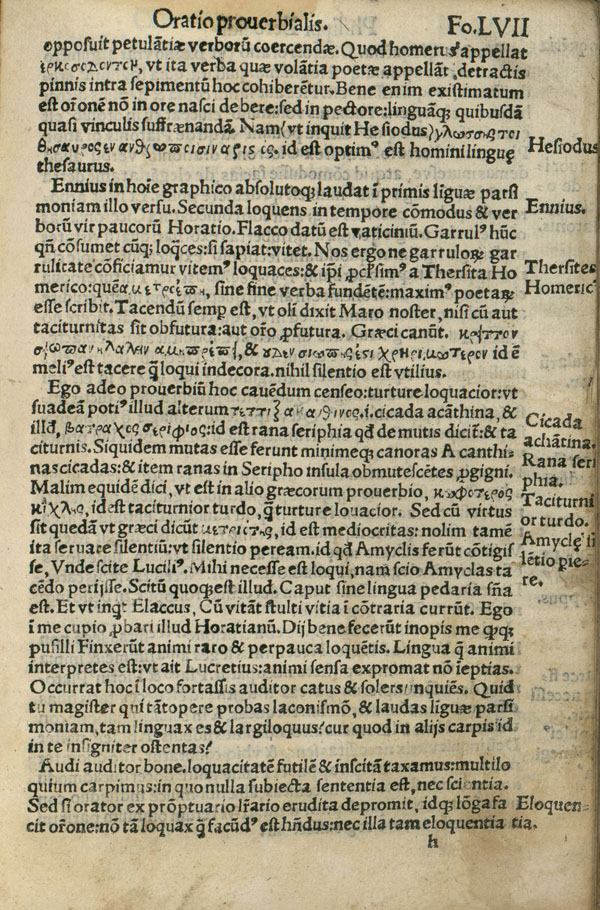 Oratio prouerbialis. Fo.LVII
opposuit petulãtiæ verborũ coercendæ. Quod homerus appellat
ἕρκος ὀδόντων, vt ita verba quæ volãtia poetæ appellãt, detractis
pinnis intra sepimentũ hoc cohiberẽtur. Bene enim existimatum
est orõnẽ nõ in ore nasci debere: sed in pectore: linguãq; quibusdã
quasi vinculis suffrænandã. Nam (vt inquit Hesiodus) γλωσσης τοι
θησαυρος εν ανθρωποισιν αριστος. id est optimꝰ est homini linguę
Hesiodus
thesaurus.
Ennius in hoĩe graphico absolutoq; laudat ĩ primis lĩguæ parsĩ
moniam illo versu. Secunda loquens in tempore cõmodus & ver
Ennius.
borũ vir paucorũ Horatio. Flacco datũ est vaticiniũ. Garrulꝰ hũc
qñ cõsumet cũq; loq̃ces: si sapiat: vitet. Nos ergo ne garruloꝝ gar
rulitate cõficiamur vitemꝰ loquaces: & ip̃i ꝓcl'simꝰ a Thersita Ho
Thersites
merico: quẽ αμετροεπῆ, sine fine verba fundẽtẽ: maximꝰ poetaꝝ
Homericꝰ
esse scribit. Tacendũ semp est, vt oli dixit Maro noster, nisi cũ aut
taciturnitas sit obfutura: aut orõ ꝓfutura. Græci canũt. κρῆττον
σιωπαν η λαλειν α μη πρέπει, & ουδεν σιωπῆς ἐστι χρησιμωτερον id ẽ
meliꝰ est tacere q̃ loqui indecora. nihil silentio est vtilius.
Ego adeo prouerbiũ hoc cauẽdum censeo: turture loquacior: vt
suadeã potiꝰ illud alterum τεττιξ ακανθινος. i. cicada acãthina, &
illđ, βατραχος σεριφιος: id est rana seriphia qđ de mutis dicit̃: & ta
Cicada
achãtina.
citurnis. Siquidem mutas esse ferunt minimeq; canoras Acanthi=
Rana seri
nas cicadas: & item ranas in Seripho insula obmutescẽtes ꝓgigni.
phia.
Malim equidẽ dici, vt est in alio græcorum prouerbio, κωφοτερος
Taciturni
κίχλης, id est taciturnior turdo, q̃ turture louacior. Sed cũ virtus
or turdo.
sit quedã vt græci dicũt μετριότης, id est mediocritas: nolim tamẽ
Amyclę si
ita seruare silentiũ: vt silentio peream. id qđ Amyclis ferũt cõtigis
lẽtio pie=
se, Vnde scite Luciliꝰ. Mihi necesse est loqui, nam scio Amyclas ta
re.
cẽdo perijsse. Scitũ quoq; est illud. Caput sine lingua pedaria sñã
est. Et vt inq̃t Elaccus, Cũ vitãt stulti vitia ĩ cõtraria currũt. Ego
ĩ me cupio ꝓbari illud Horatianũ. Dij bene fecerũt inopis me q̃q;
pusilli Finxerũt animi raro & perpauca loquẽtis. Lingua q̃ animi
interpretes est: vt ait Lucretius: animi sensa expromat nõ ĩeptias.
Occurrat hoc ĩ loco fortassis auditor catus & solers inquiẽs. Quid
tu magister qui tãtopere probas laconismõ, & laudas lĩguæ parsĩ
moniam, tam linguax es & largiloquus? cur quod in alijs carpis id
in te insigniter ostentas?
Audi auditor bone. loquacitatẽ futilẽ & inscitã taxamus: multilo
quium carpimus: in quo nulla subiecta sententia est, nec scientia.
Sed si orator ex prõptuario lr̃ario erudita depromit, idq; lõga fa
Eloquen=
cit orõne: nõ tã loquax q̃ facũdꝰ est hñdus: nec illa tam eloquentia
tia.
h